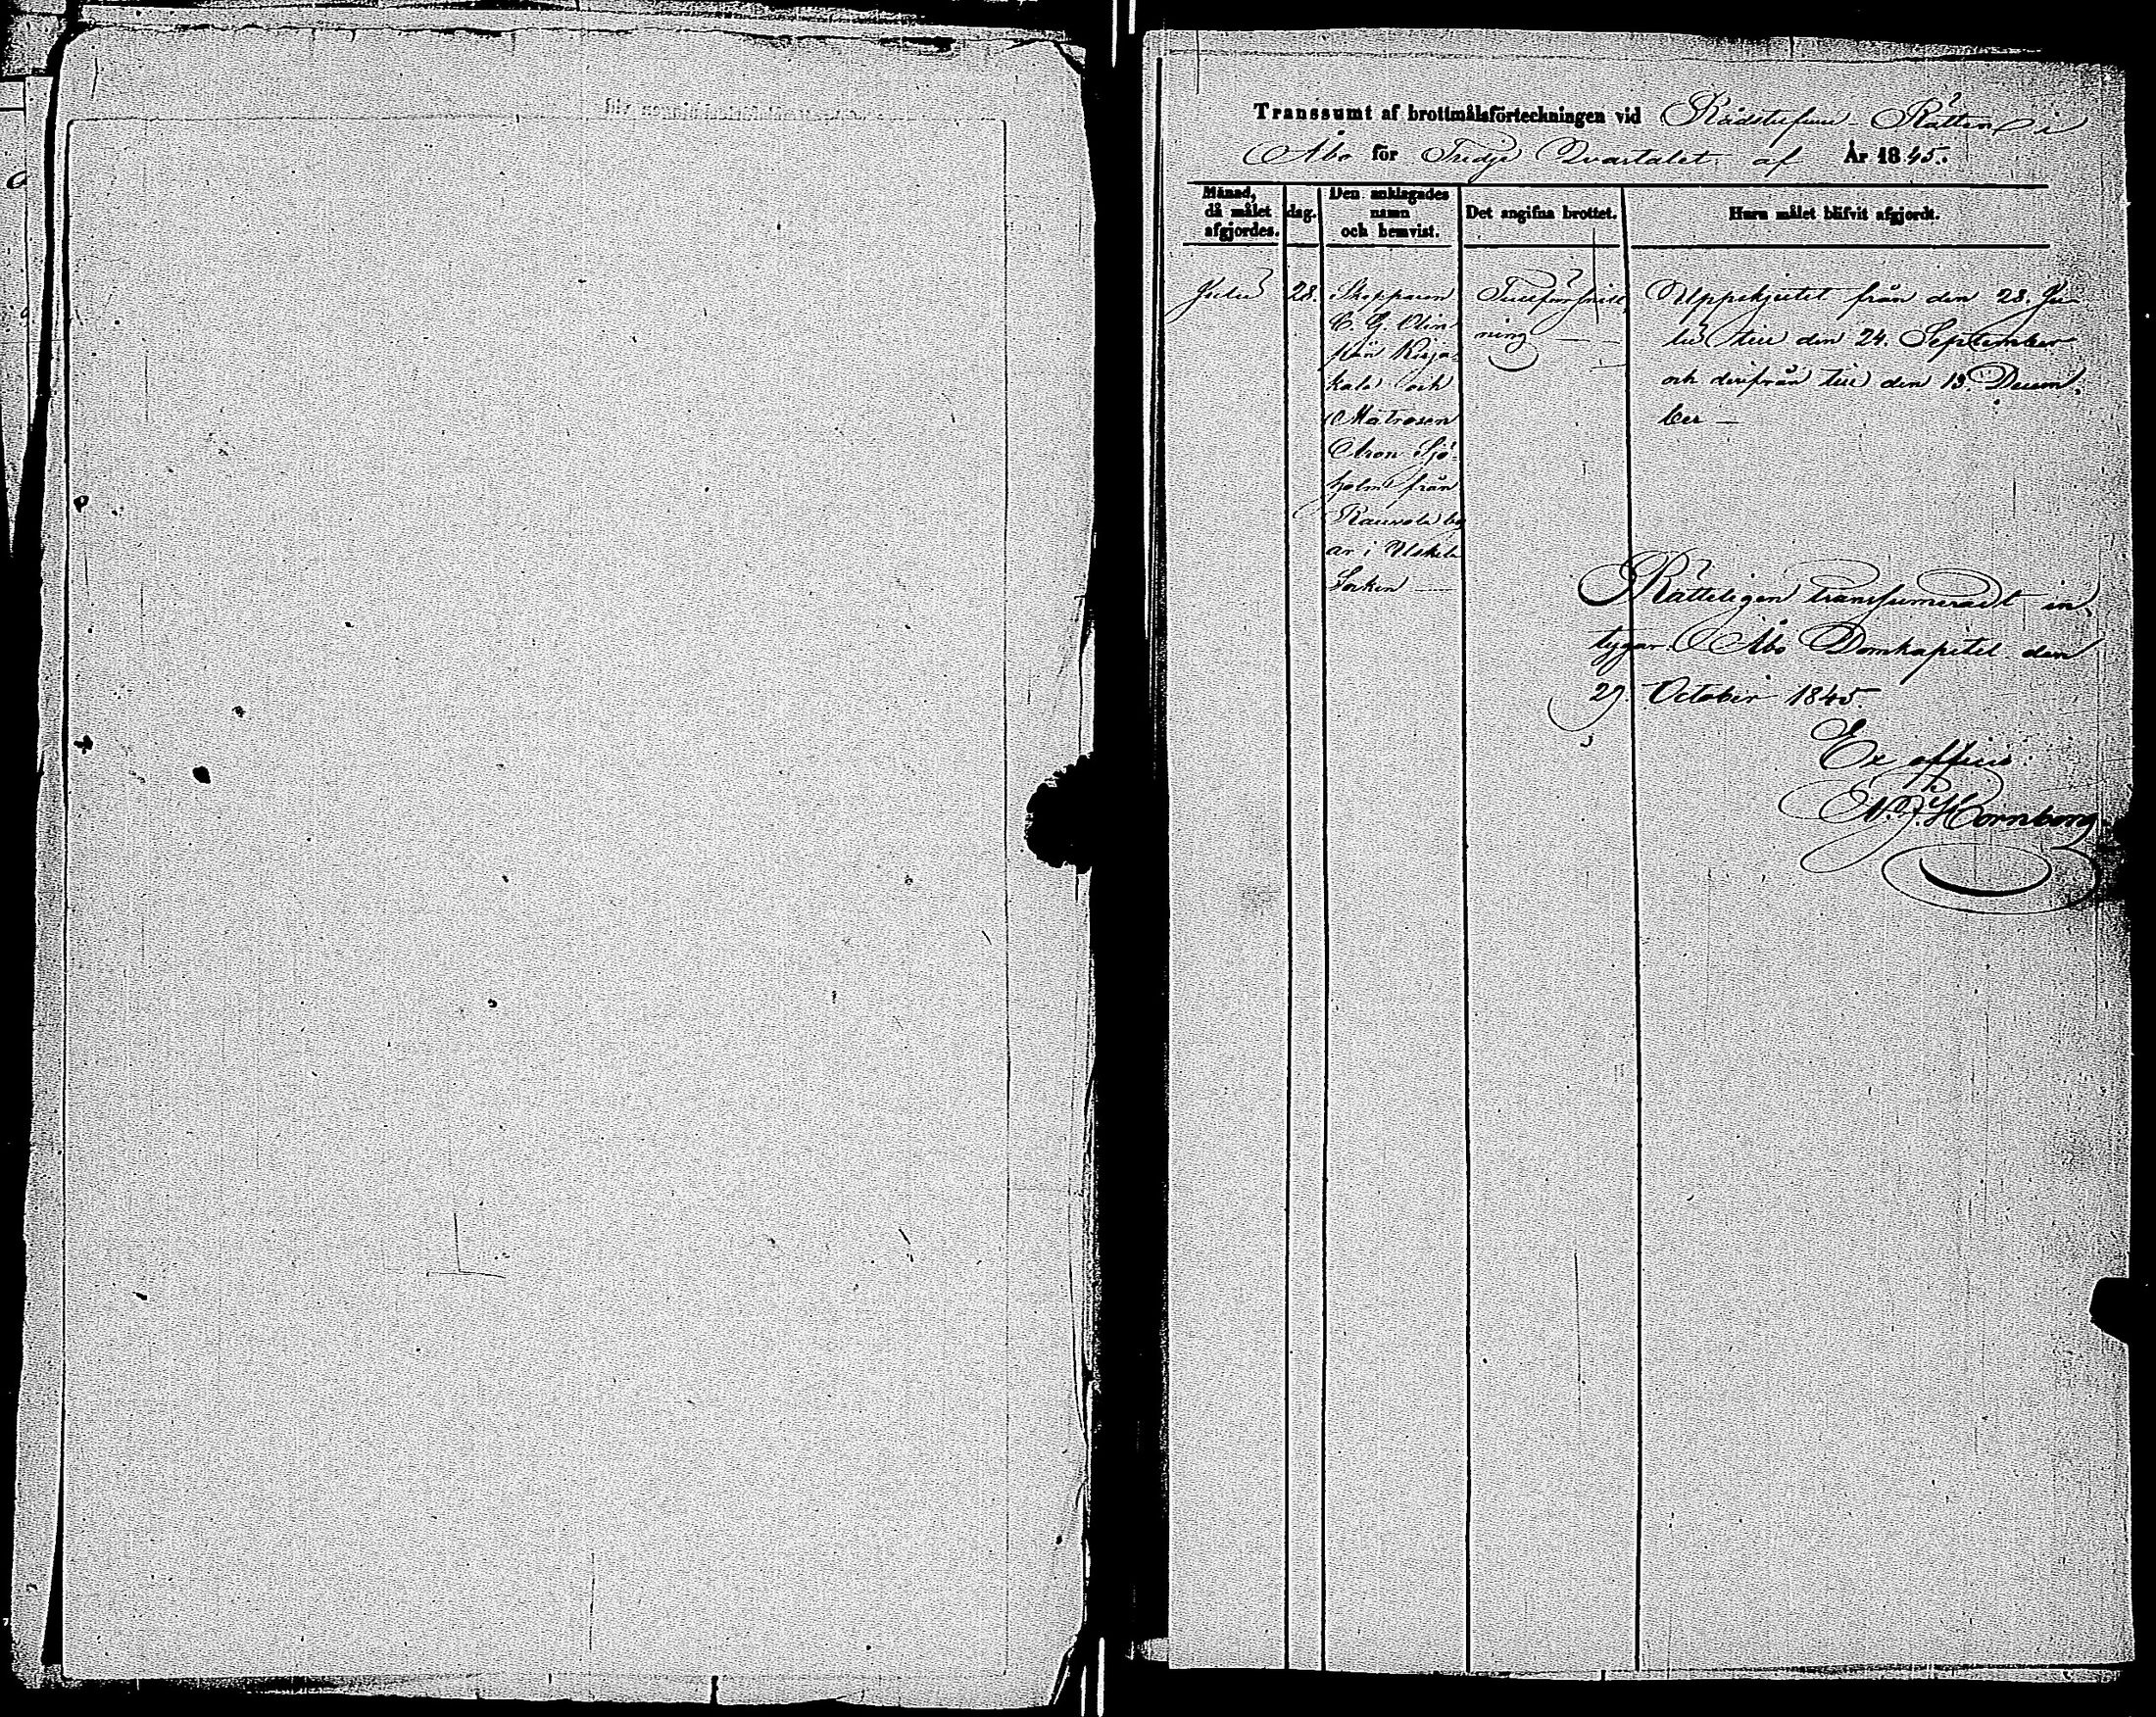 Transsumt af brottmålsförteckningen vid Rådstufvu-Rätten i
Åbo för Tredje Qvartalet af År 1845.
Månad, då målet afgjordes.
dag.
Den anklagades namn och hemvist.
Det angifna brottet.
Huru målet blifvit afgjordt.
Julii
28.
Skepparen
C. G. Olin
från Kirja-
kala och
Matrosen
Aron Sjö-
holm från
Rauvola by
ar i Uskela
Socken —
Tullförsnill
ning —
Uppskjutet från den 28. Ju-
lii till den 24. September
och derifrån till den 13. Decem-
ber —
Rätteligen transsumeradt in-
tygar. Åbo Domkapitel den
29. October 1845.
Ex officio:
Hornborg